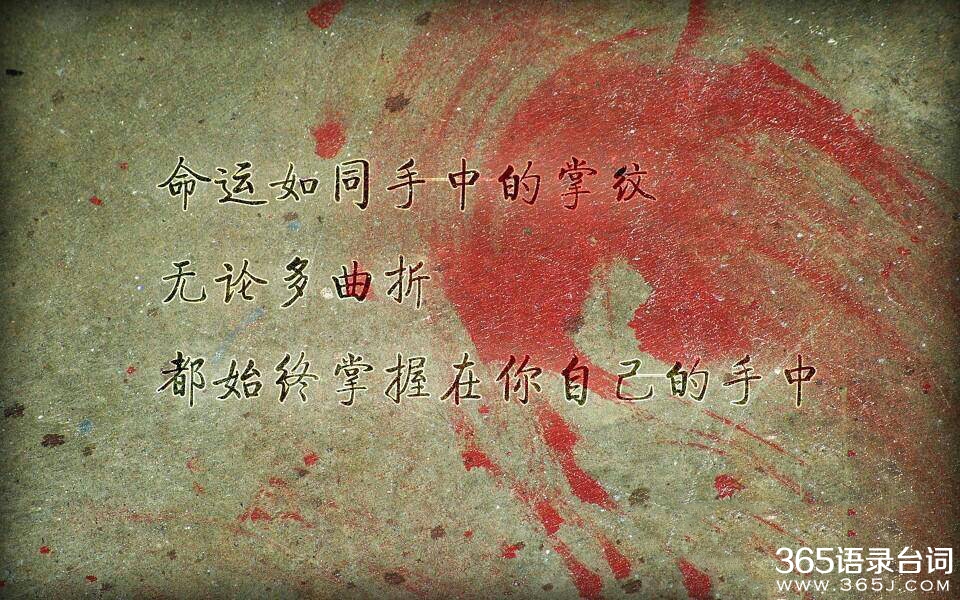 命运如同手中的掌纹
无论多曲折
都始终掌握在你自己的手中
365语录台词
WWW.365J.COM